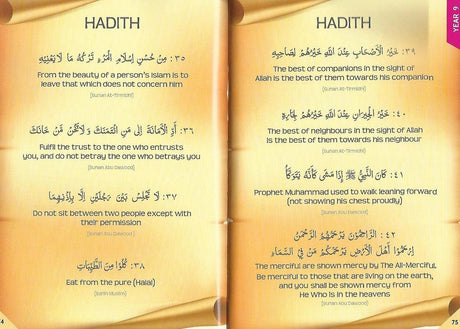 HADITH
٣٥: مِنْ حُسْنِ إِسْلَامِ الْمَرْءِ تَرْكُهُ مَا لَا يَعْنِيْهِ
From the beauty of a person's Islam is to
leave that which does not concern him
[Sunan At-Tirmidhi]
٣٦: أَدِّ الْأَمَانَةَ إِلَى مَنِ ائْتَمَنَكَ وَلَا تَخُنْ مَنْ خَانَكَ
Fulfil the trust to the one who entrusts
you, and do not betray the one who betrays you
[Sunan Abu Dawood]
٣٧: لَا تَجْلِسْ بَيْنَ رَجُلَيْنِ إِلَّا بِإِذْنِهِمَا
Do not sit between two people except with
their permission
[Sunan Abu Dawood]
٣٨: كُلُوْا مِنَ الطَّيِّبَاتِ
Eat from the pure (Halal)
[Sahih Muslim]
HADITH
YEAR 9
٣٩: خَيْرُ الْأَصْحَابِ عِنْدَ اللهِ خَيْرُهُمْ لِصَاحِبِهِ
The best of companions in the sight of
Allah is the best of them towards his companion
[Sunan At-Tirmidhi]
٤٠: خَيْرُ الْجِيْرَانِ عِنْدَ اللهِ خَيْرُهُمْ لِجَارِهِ
The best of neighbours in the sight of Allah
is the best of them towards his neighbour
[Sunan At-Tirmidhi]
٤١: كَانَ النَّبِيُّ ﷺ إِذَا مَشَى كَأَنَّهُ يَتَوَكَّأُ
Prophet Muhammad used to walk leaning forward
(not showing his chest proudly)
[Sunan Abu Dawood]
٤٢: الرَّاحِمُوْنَ يَرْحَمُهُمُ الرَّحْمٰنُ
اِرْحَمُوْا أَهْلَ الْأَرْضِ يَرْحَمْكُمْ مَنْ فِي السَّمَاءِ
The merciful are shown mercy by The All-Merciful.
Be merciful to those that are living on the earth,
and you shall be shown mercy from
He Who is in the heavens
[Sunan Abu Dawood]
75